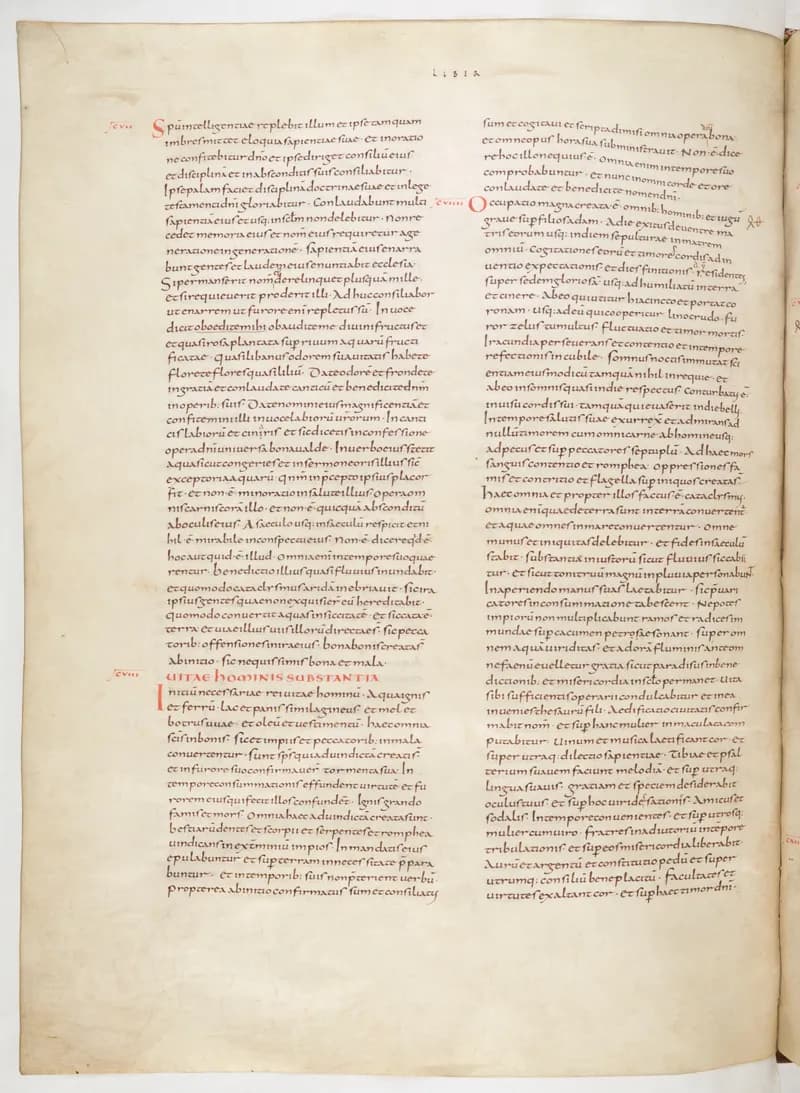 LIBER
xcvii
Spu intelligentiae replebit illum et ipse tamquam
imbres mittet eloquia sapientiae suae · et in oratio
ne confitebitur dno et ipse diriget consiliu eius
et disciplina et in absconditis suis consiliabitur ·
Ipse palam faciet disciplina doctrinae suae et in lege
testamenti dni gloriabitur · Conlaudabunt multi
sapientia eius et usq; in sclm non delebitur · Non re
cedet memoria eius et nom eius requiretur a ge
neratione in generatione · sapientia eius enarra
bunt gentes et laudem eius enuntiabit ecclesia ·
Si permanserit nom derelinquet plus qua mille ·
et si requieuerit proderit illi · Adhuc consiliabor
ut enarrem ut furore eni repletus su · In uoce
dicit oboedite mihi obaudite me diuini fructus et
et quasi rosa plantata sup riuum aquaru fructi
ficatae · quasi libanus odorem suauitatis habete
florete flores quasi liliu · Date odore et frondete
in gratia et conlaudate canticu et benedicite dnm
in operib; suis · Date nomini eius magnificentia et
confitemini illi in uoce labioru urorum · In canti
cis labioru et ciniris et sic dicetis in confessione
opera dni uniuersa bona ualde · In uerbo eius stetit
aqua sicut congeries et in sermone oris illius sic
exceptoria aquaru · Qnm in pcepto ipsius placor
fit · et non e minoratio in salute illius · Opera om
nis carnis cora illo · et non e quicqua absconditu
ab oculis eius · A saeculo usq; in saeculu respicit et ni
hil e mirabile in conspectu eius · Non e dicere qd e
hoc aut quid e illud · Omnia eni in tempore suo quae
rentur · benedictio illius quasi fluuius inundabit ·
et quomodo cataclysmus arida inebriauit · sic ira
ipsius gentes quae non exquisier eu hereditabit ·
quomodo conuertit aquas in siccitate · et siccata e
terra et uiae illius uiis illoru directae s sic pecca
torib; offensiones in ira eius · bona bonis creata s
ab initio · sic nequissimis bona et mala ·
xcviii
UITAE HOMINIS SUBSTANTIA
Initiu necessariae rei uitae hominu · Aqua ignis
et ferru · Lac et panis similagineus et mel et
botrus uuae · et oleu et uestimentu · haec omnia
scis in bonis · sic et impiis et peccatorib; in mala
conuertentur · sunt sps qui ad uindicta creati s
et in furore suo confirmauer tormenta sua · In
tempore consummationis effundent uirtute et fu
rorem eius qui fecit illos confundet · Ignis grando
fames et mors · Omnia haec ad uindicta creata sunt ·
bestiaru dentes et scorpii et serpentes et romphea
uindicans in exterminiu impios · In mandatis eius
epulabuntur · et sup terram in necessitate ppara
buntur · et in temporib; suis non pterient uerbu ·
propterea ab initio confirmatus sum et consiliatus
sum et cogitaui et scripta dimisi omnia opera bona
et omne opus hora sua subministrauit · Non e dice
re hoc illo nequius e · Omnia enim in tempore suo
comprobabuntur · et nunc in omni corde et ore
conlaudate et benedicite nomen dni ·
xcviiii
Occupatio magna creata e omnib; hominib; et iugu
graue sup filios adam · A die exitus de uentre ma
tris eorum usq; in diem sepulturae in matrem
omniu · Cogitationes eoru et timores cordis ad in
uentio expectationis et dies finitionis · a residentes
super sedem gloriosa usq; ad humiliatu in terra
et cinere · Ab eo qui utitur hiacincto et portat co
ronam · usq; ad eu qui cooperitur lino crudo · fu
ror zelus tumultus fluctuatio et timor mortis
Iracundia perseuerans et contentio et in tempore
refectionis in cubile · somnus noctis inmutat sci
entiam eius modicu tamqua nihil in requie · et
ab eo in somnis quasi in die respectus · Conturbatus e
in uisu cordis sui · tamqua qui euaserit in die belli ·
In tempore salutis suae exurrex et admirans ad
nullu timorem cum omni carne ab homine usq;
ad pecus et sup peccatores septuplu · Ad haec mors
sanguis contentio et romphea · oppressiones fa
mis et contritio et flagella sup iniquos creata s
haec omnia et propter illos factus e cataclysmus ·
omnia eni quae de terra sunt in terra conuertent
et aquae omnes in mare conuertentur · Omne
munus et iniquitas delebitur · et fides in saeculu
stabit · substantia iniustoru sicut fluuius siccabi
tur · et sicut tonitruu magnu in pluuia personabunt
In aperiendo manus suas laetabitur · sic puari
catores in consummatione tabescent · Nepotes
impioru non multiplicabunt ramos et radices im
mundae sup cacumen petrosae sonant · super om
nem aqua uiriditas · et ad ora fluminis ante om
ne faenu euelletur · gratia sicut paradisus in bene
dictionib; et misericordia in sclo permanet · Uita
sibi sufficientis operarii condulcabitur et in ea
inuenies thesauru fili · Aedificatio ciuitatis confir
mabit nom · et sup hanc mulier inmaculata com
putabitur · Uinum et musica laetificant cor · et
super utraq; dilectio sapientiae · Tibiae et psal
terium suauem faciunt melodia · et sup utraq;
lingua suauis · gratiam et speciem desiderabit
oculus tuus · et sup hoc uiride sationis · Amicus et
sodalis · In tempore conuenientes · et sup utrosq;
mulier cum uiro · fratres in adiutoriu in tepore
tribulationis · et sup eos misericordia liberabit ·
Auru et argentu et constitutio pedu · et super
utrumq; consiliu beneplacitu · facultates et
uirtutes exaltant cor · et sup haec timor dni ·